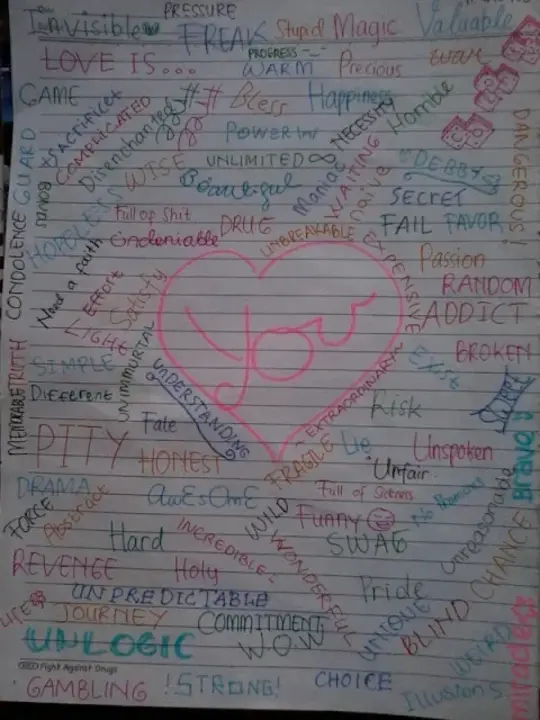 Invisible
PRESSURE
FREAK
Stupid
Magic
Valuable
LOVE IS...
PROGRESS
WARM
Precious
GAME
SACRIFICE
COMPLICATED
Disenchanted
##
Bless
Happiness
NECESSITY
Horrible
GUARD
WISE
Powerful
UNLIMITED ∞
Beautiful
Maniac
WAITING
naive
DEBBTS
DANGEROUS!
BONUS
SECRET
HOPELESS
Full of Shit
DRUG
FAIL
FAVOR
CONDOLENCE
Need a faith
Undeniable
UNBREAKABLE
EXPENSIVE
Passion
Effort
Satisfy
RANDOM
LIGHT
You
ADDICT
TRUTH
SIMPLE
UNIMMORTAL
EXIST
BROKEN
MEMORABLE
Different
UNDERSTANDING
EXTRAORDINARY
Risk
SWEET
Fate
PITY
HONEST
FRAGILE
Lie
Unspoken
Bravo!
Unfair
DRAMA
AwEsOmE
Full of Sickness
FORCE
Abstract
WILD
Funny
Unreasonable
Hard
INCREDIBLE
WONDERFUL
SWAG
CHANCE
REVENGE
Holy
UNPREDICTABLE
Pride
LIFE
JOURNEY
COMMITMENT
UNIQUE
BLIND
UNLOGIC
W.O.W
WEIRD
miracles
Fight Against Drugs
GAMBLING
!STRONG!
CHOICE
Illusions